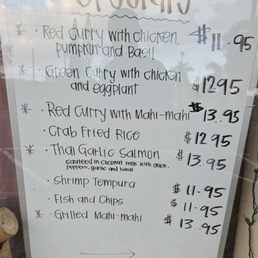 * · Red Curry with chicken, $11.95
pumpkin and Basil
* · Green Curry with chicken $1295
and eggplant
* · Red Curry with Mahi-mahi $13.95
· Crab Fried Rice $1295
* · Thai Garlic Salmon $13.95
sauteed in coconut milk with onion,
peppers, garlic and basil
· Shrimp Tempura $11.95
· Fish and Chips $11.95
* · Grilled Mahi-mahi $13.95